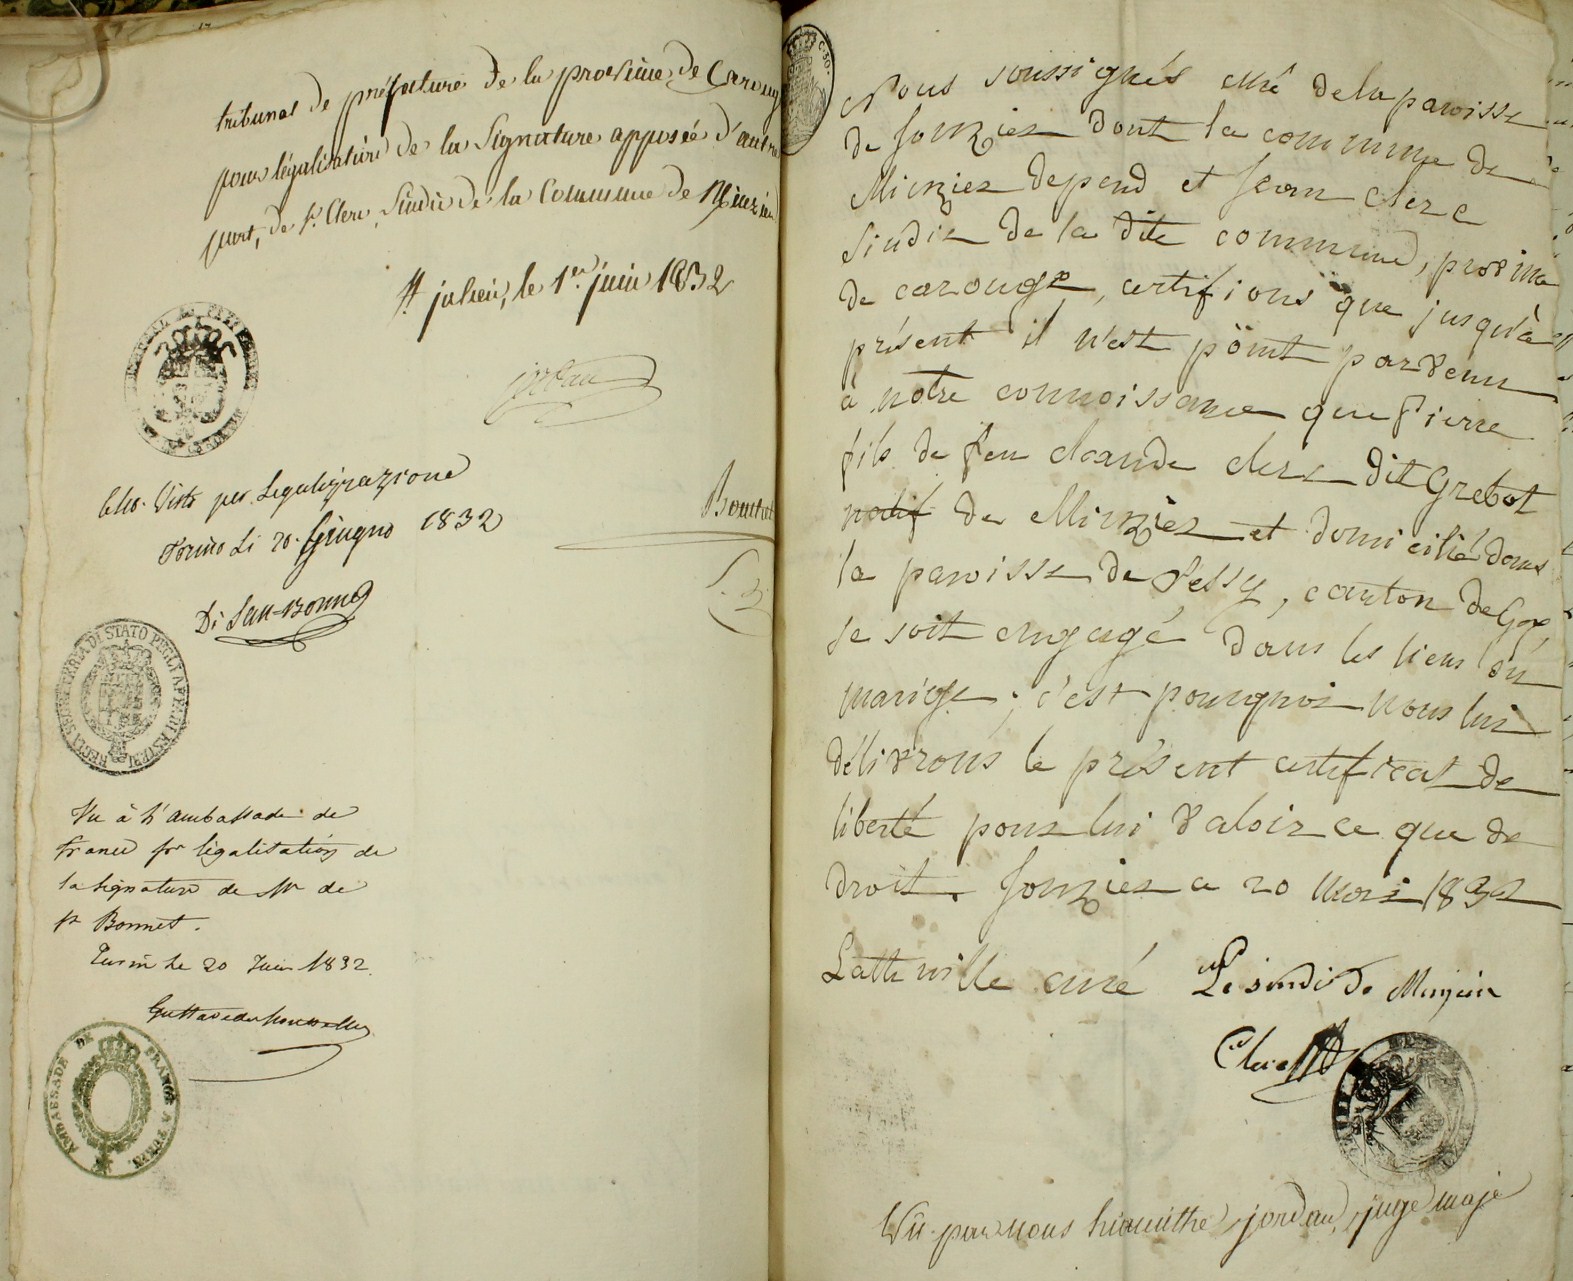 tribunal de préfecture de la province de Carouge
pour légalisation de la Signature apposée d'autre
part, de sr. Clerc, Sindic de la Commune de Minzier
St julien, le 1er. juin 1832
jordan
Visto per Legalizzazione
Torino Li 20. Giugno 1832
Di San-Bonne
REGIA SEGRETERIA DI STATO PEGLI AFFARI ESTERI
Vu à l'ambassade de
france pr légalisation de
la signature de Mr de
St Bonnet.
Turin le 20 Juin 1832.
AMBASSADE DE FRANCE A TURIN.
C. 30.
Nous soussignés curé de la paroisse
de Jonzier dont la commune de
Minzier depend et Jean Clerc
Sindic de la dite commune, province
de carouge, certifions que jusqu'à
présent il n'est point parvenu
à notre connoissance que Pierre
fils de feu claude clerc dit Grebot
natif de Minzier et domicilié dans
la paroisse de Pessy, canton de Gex,
se soit engagé dans les liens du
mariage; c'est pourquoi nous lui
délivrons le présent certificat de
liberté pour lui valoir ce que de
droit. Jonzier a 20 Mars 1832
Lathuille curé Le sindic de Minzier
Clerc
Vû par nous hiacinthe jordan, juge maje